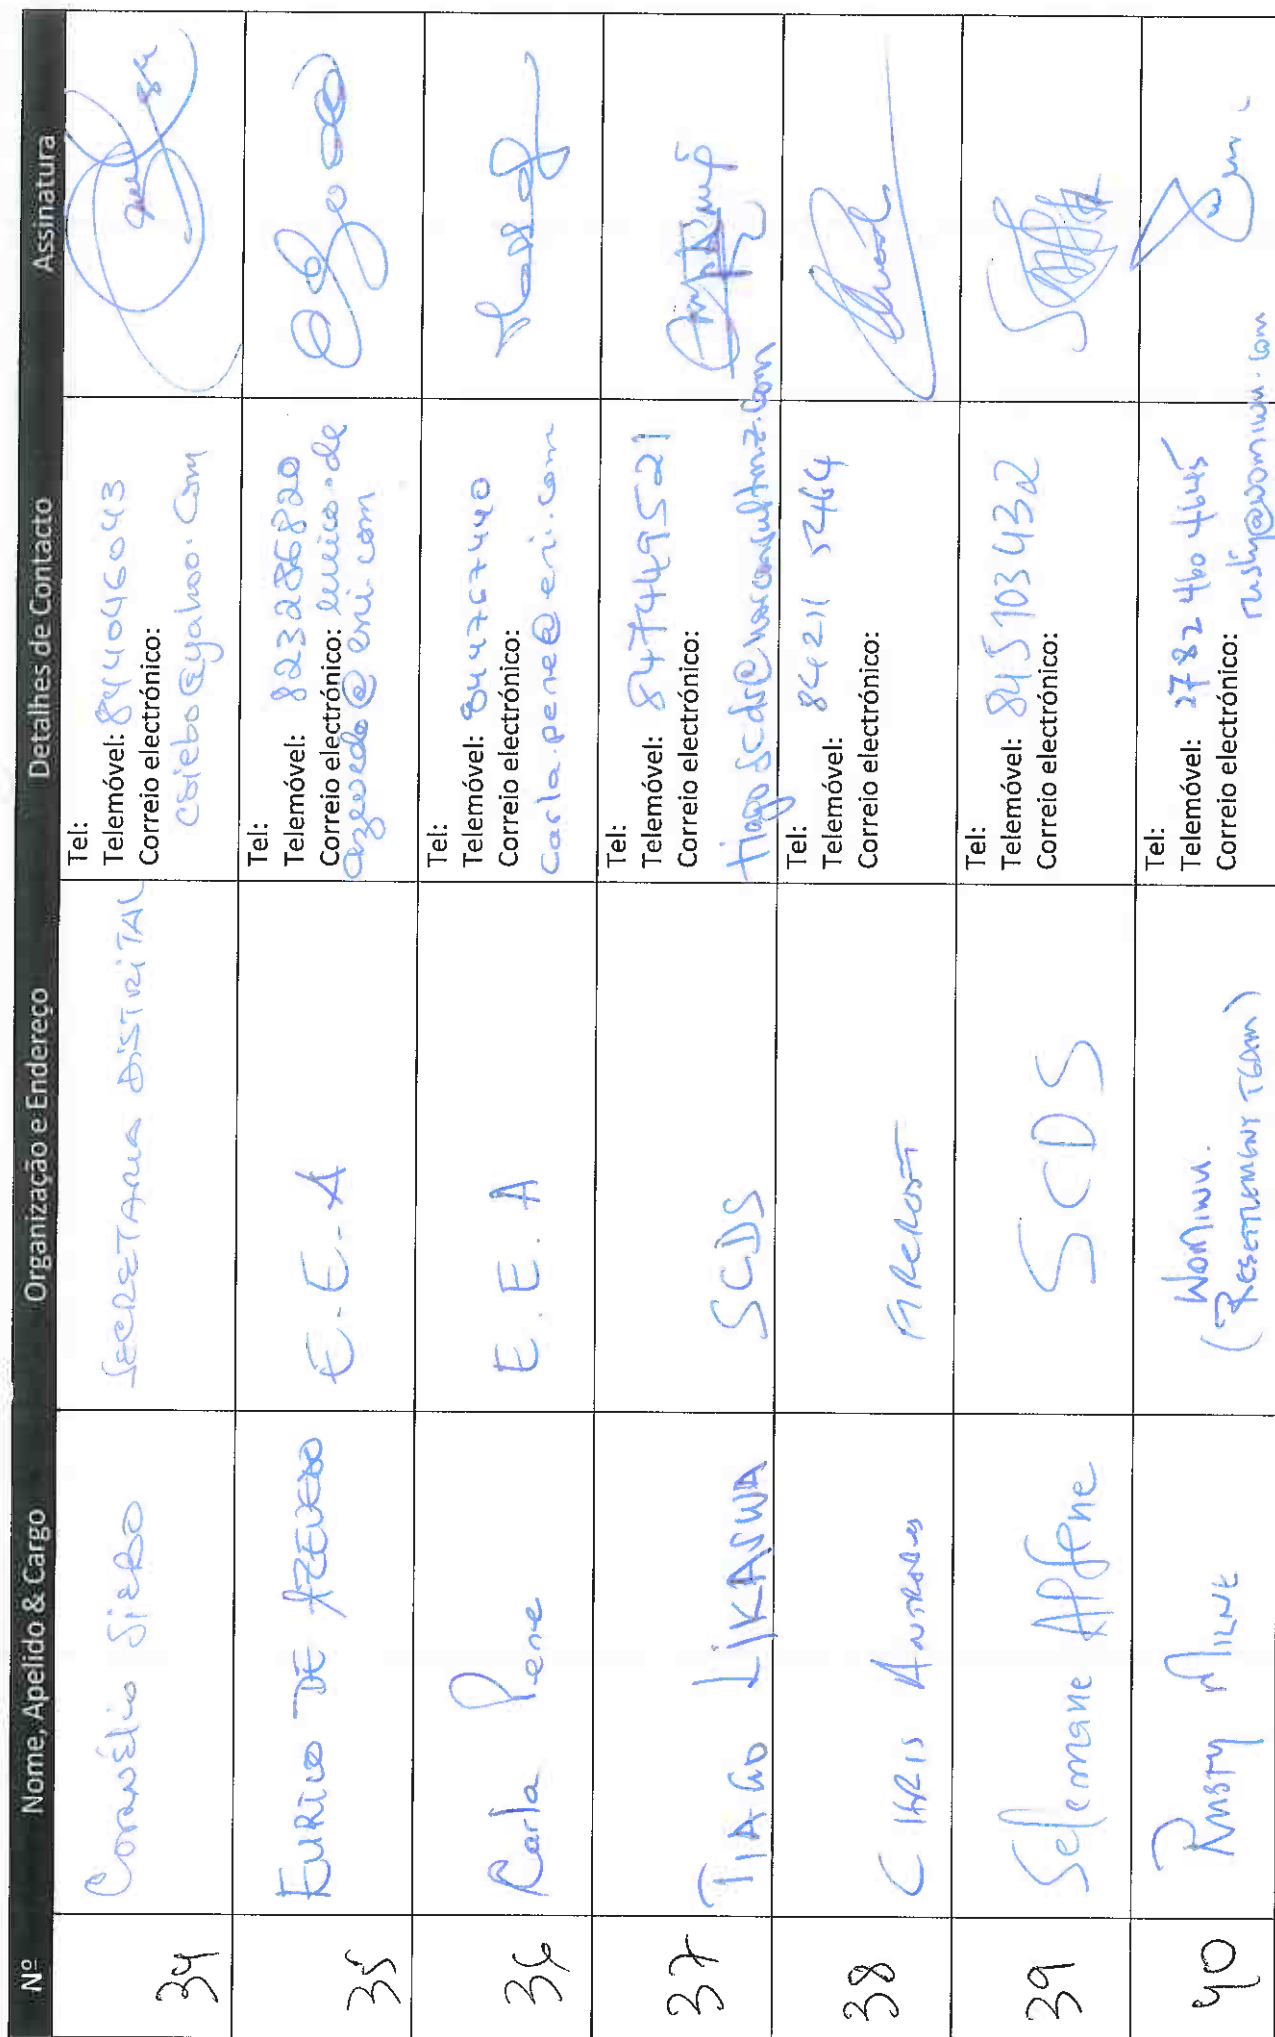 Nº Nome, Apelido & Cargo Organização e Endereço Detalhes de Contacto Assinatura
34 Cornélio Siebo SECRETARIA DISTRITAL
Tel:
Telemóvel: 844046043
Correio electrónico:
csiebo@yahoo.com
35 EURICO DE AZEVEDO E.E.A
Tel:
Telemóvel: 823286820
Correio electrónico: eurico.de
azevedo@eni.com
36 Carla Pene E.E.A
Tel:
Telemóvel: 844767440
Correio electrónico:
carla.pene@eni.com
37 TIAGO LIKASWA SCDS
Tel:
Telemóvel: 847449521
Correio electrónico:
38 CHRIS
Tel:
Telemóvel: 84211 5464
Correio electrónico:
39 Selemane SCDS
Tel:
Telemóvel: 845103432
Correio electrónico:
40 RUSTY MILNE WOMIWU.
(RESETTLEMENT TEAM)
Tel:
Telemóvel: 2782 460 4645
Correio electrónico:
rusty@womiwu.com